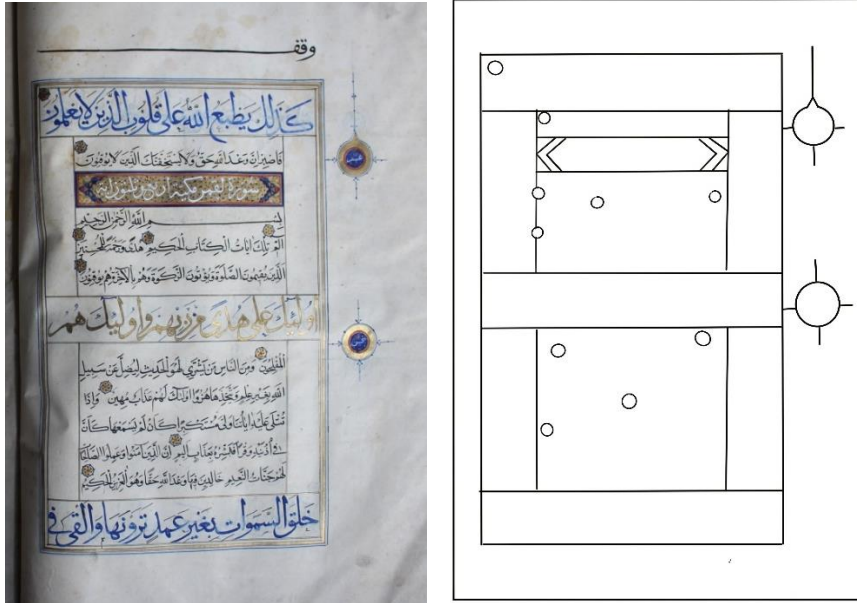 وقف
كذلك يطبع الله على قلوب الذين لا يعلمون
فاصبر ان وعد الله حق ولا يستخفنك الذين لا يوقنون
سورة لقمن مكية
بسم الله الرحمن الرحيم
الم تلك ايات الكتاب الحكيم هدى ورحمة للمحسنين
الذين يقيمون الصلوة ويؤتون الزكوة وهم بالاخرة هم يوقنون
اولئك على هدى من ربهم واولئك هم
المفلحون ومن الناس من يشتري لهو الحديث ليضل عن سبيل
الله بغير علم ويتخذها هزوا اولئك لهم عذاب مهين واذا
تتلى عليه اياتنا ولى مستكبرا كان لم يسمعها كان
في اذنيه وقرا فبشره بعذاب اليم ان الذين امنوا وعملوا الصالحات
لهم جنات النعيم خالدين فيها وعد الله حقا وهو العزيز الحكيم
خلق السموات بغير عمد ترونها والقى في